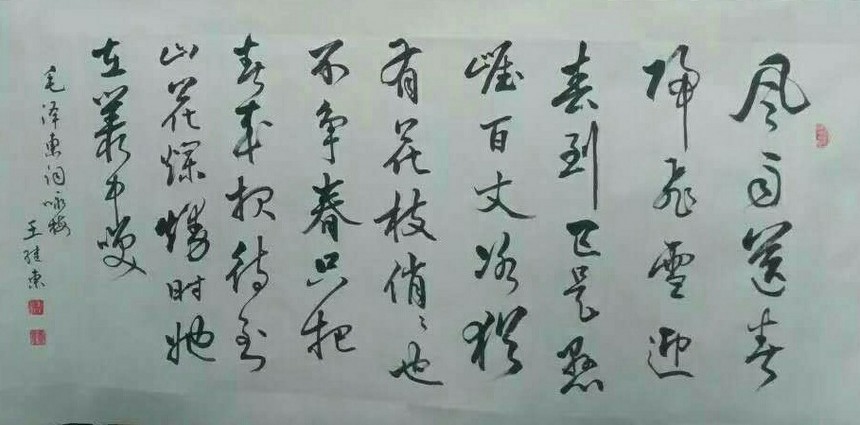 风雨送春
归飞雪迎
春到已是悬
崖百丈冰犹
有花枝俏〻也
不争春只把
春来报待到
山花烂熳时她
在叢中咲
毛泽东词咏梅
王东